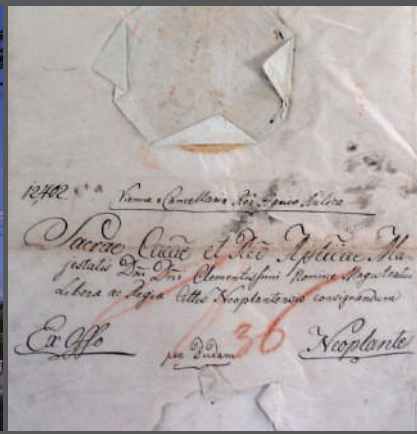 12702
Vienna e Cancellaria Reg Hung Aulica
Sacrae Caeae et Reo Apticae Ma-
jestatis Dni Dni Clementissimi Nomine Magistratui
Libera ac Regia Cittis Neoplantensis consignandum
36
Ex Offo per Budam Neoplantae